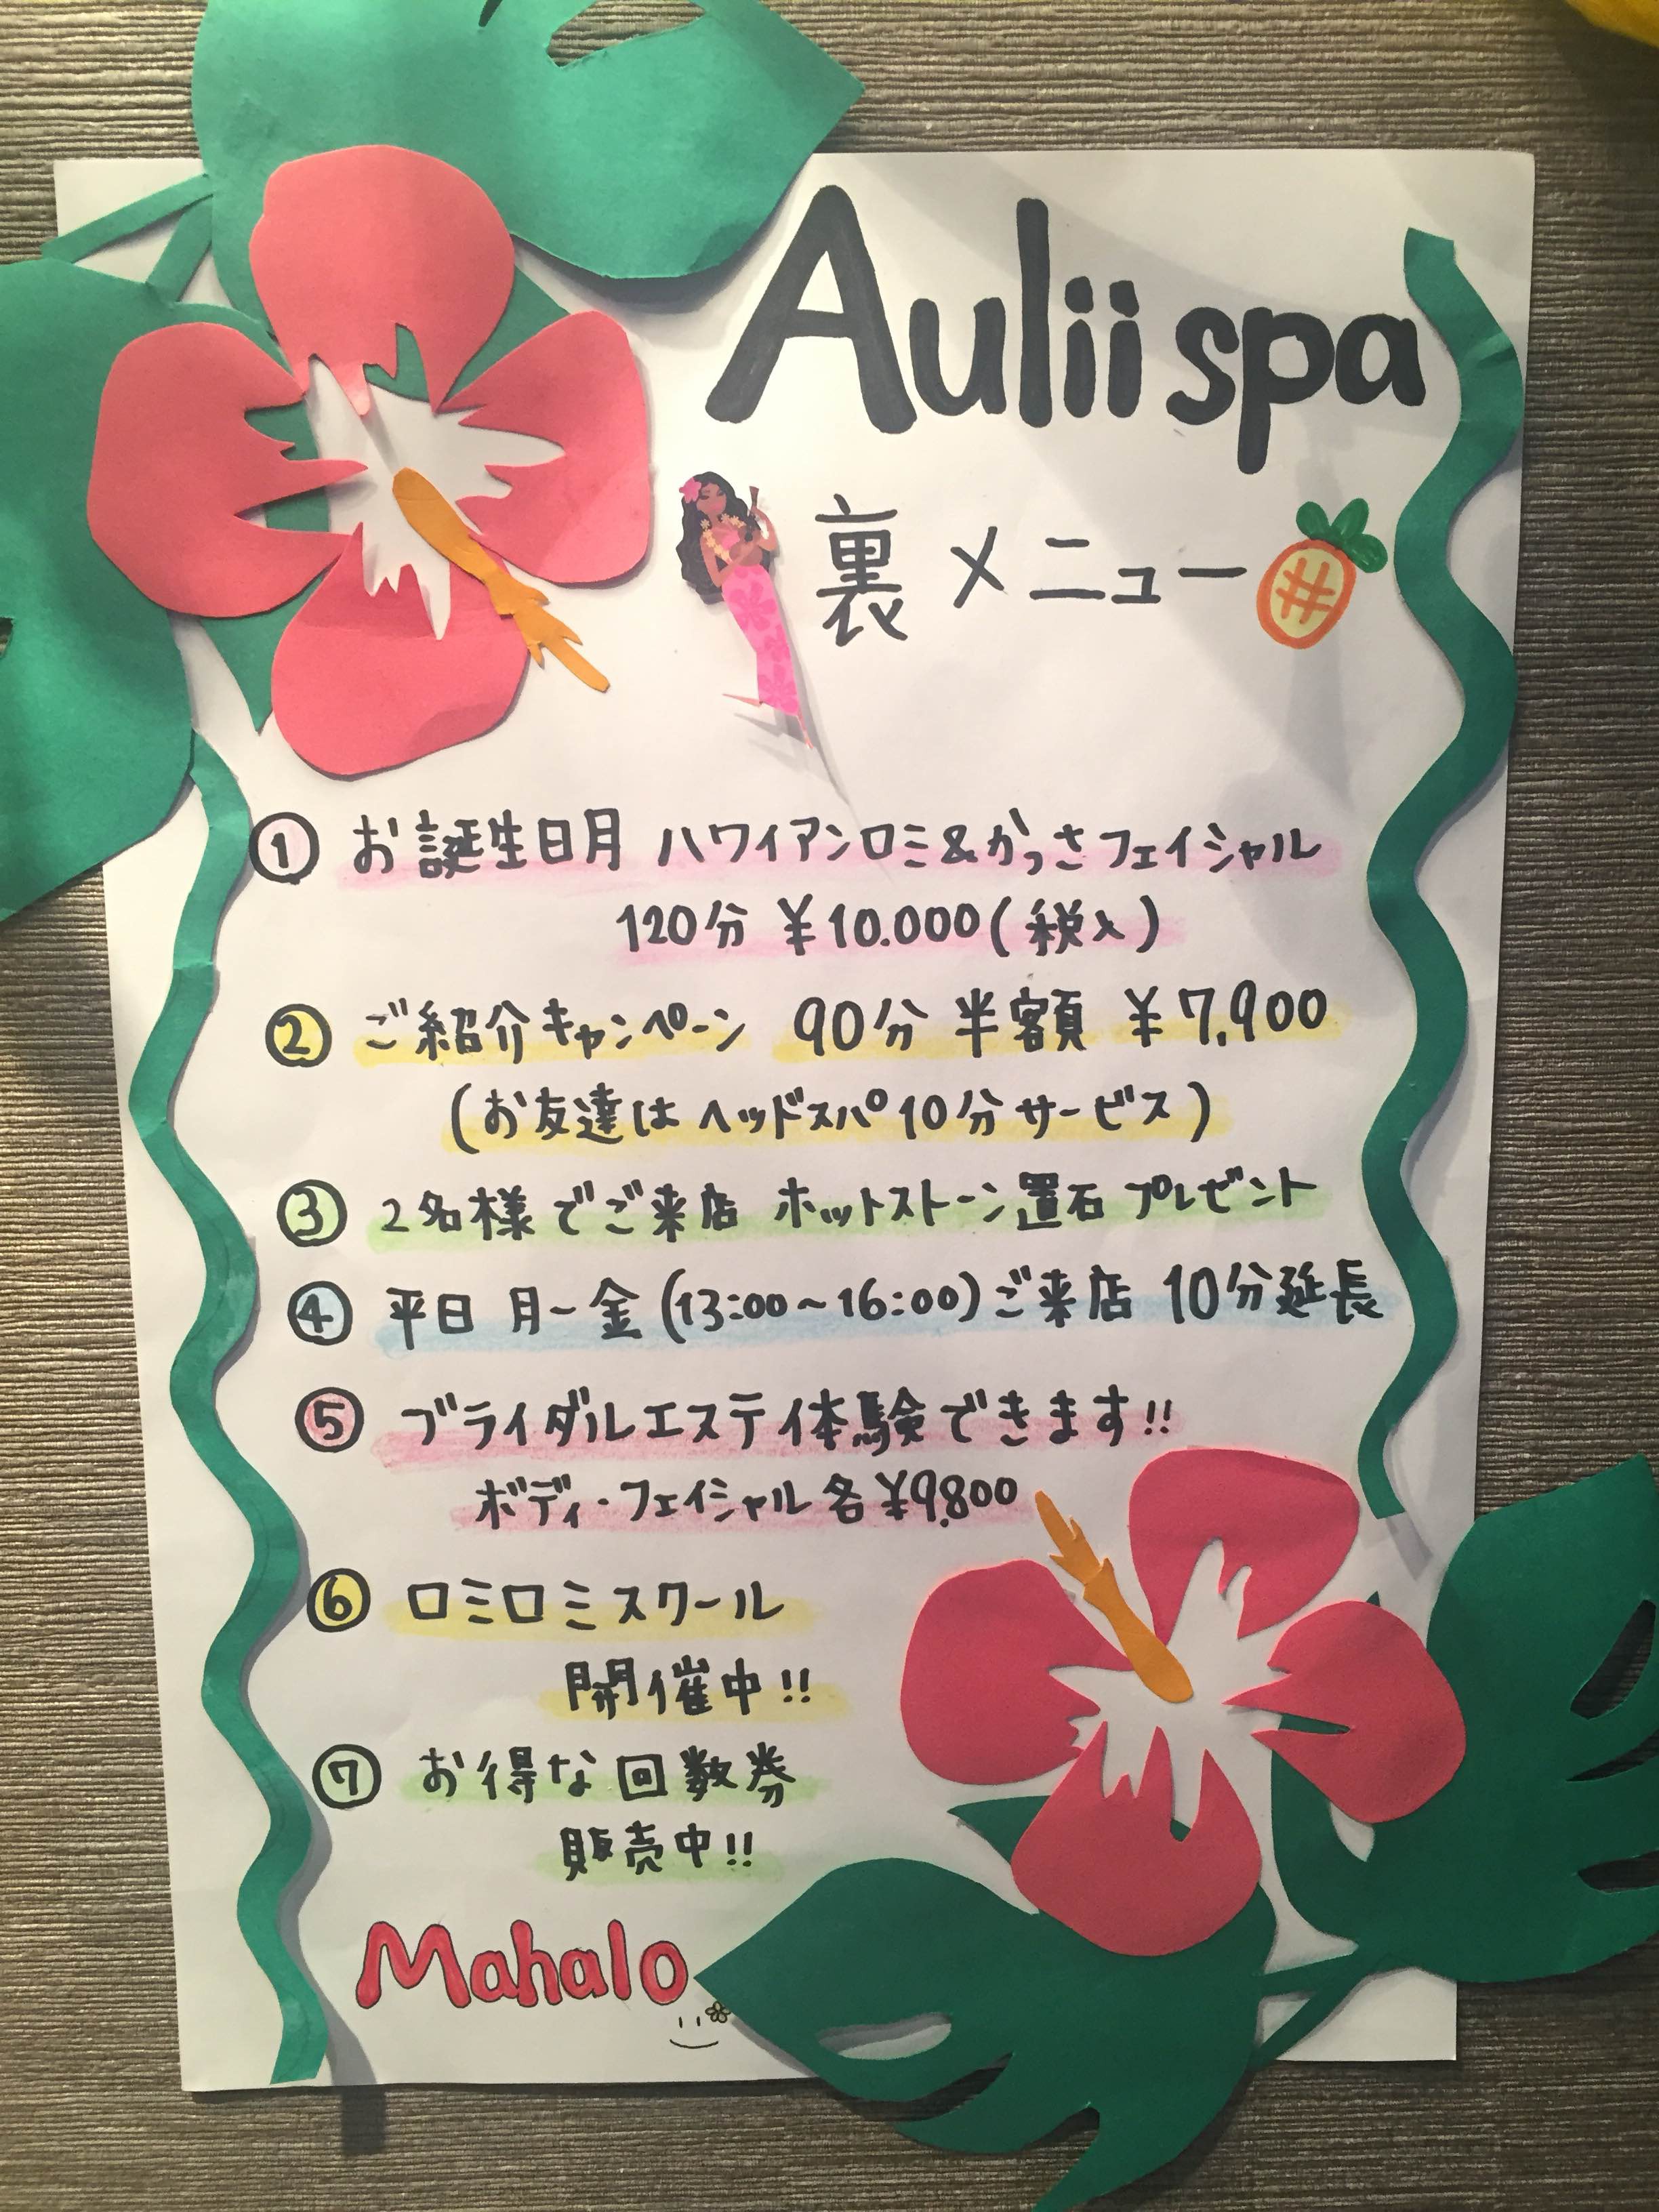 Aulii spa
裏メニュー
① お誕生日月 ハワイアンロミ&かっさフェイシャル
120分 ¥10.000(税込)
② ご紹介キャンペーン 90分 半額 ¥7,900
(お友達は ヘッドスパ10分サービス)
③ 2名様でご来店 ホットストーン置石プレゼント
④ 平日 月~金(13:00~16:00)ご来店 10分延長
⑤ ブライダルエステ体験できます!!
ボディ・フェイシャル各¥9.800
⑥ ロミロミスクール
開催中!!
⑦ お得な回数券
販売中!!
Mahalo